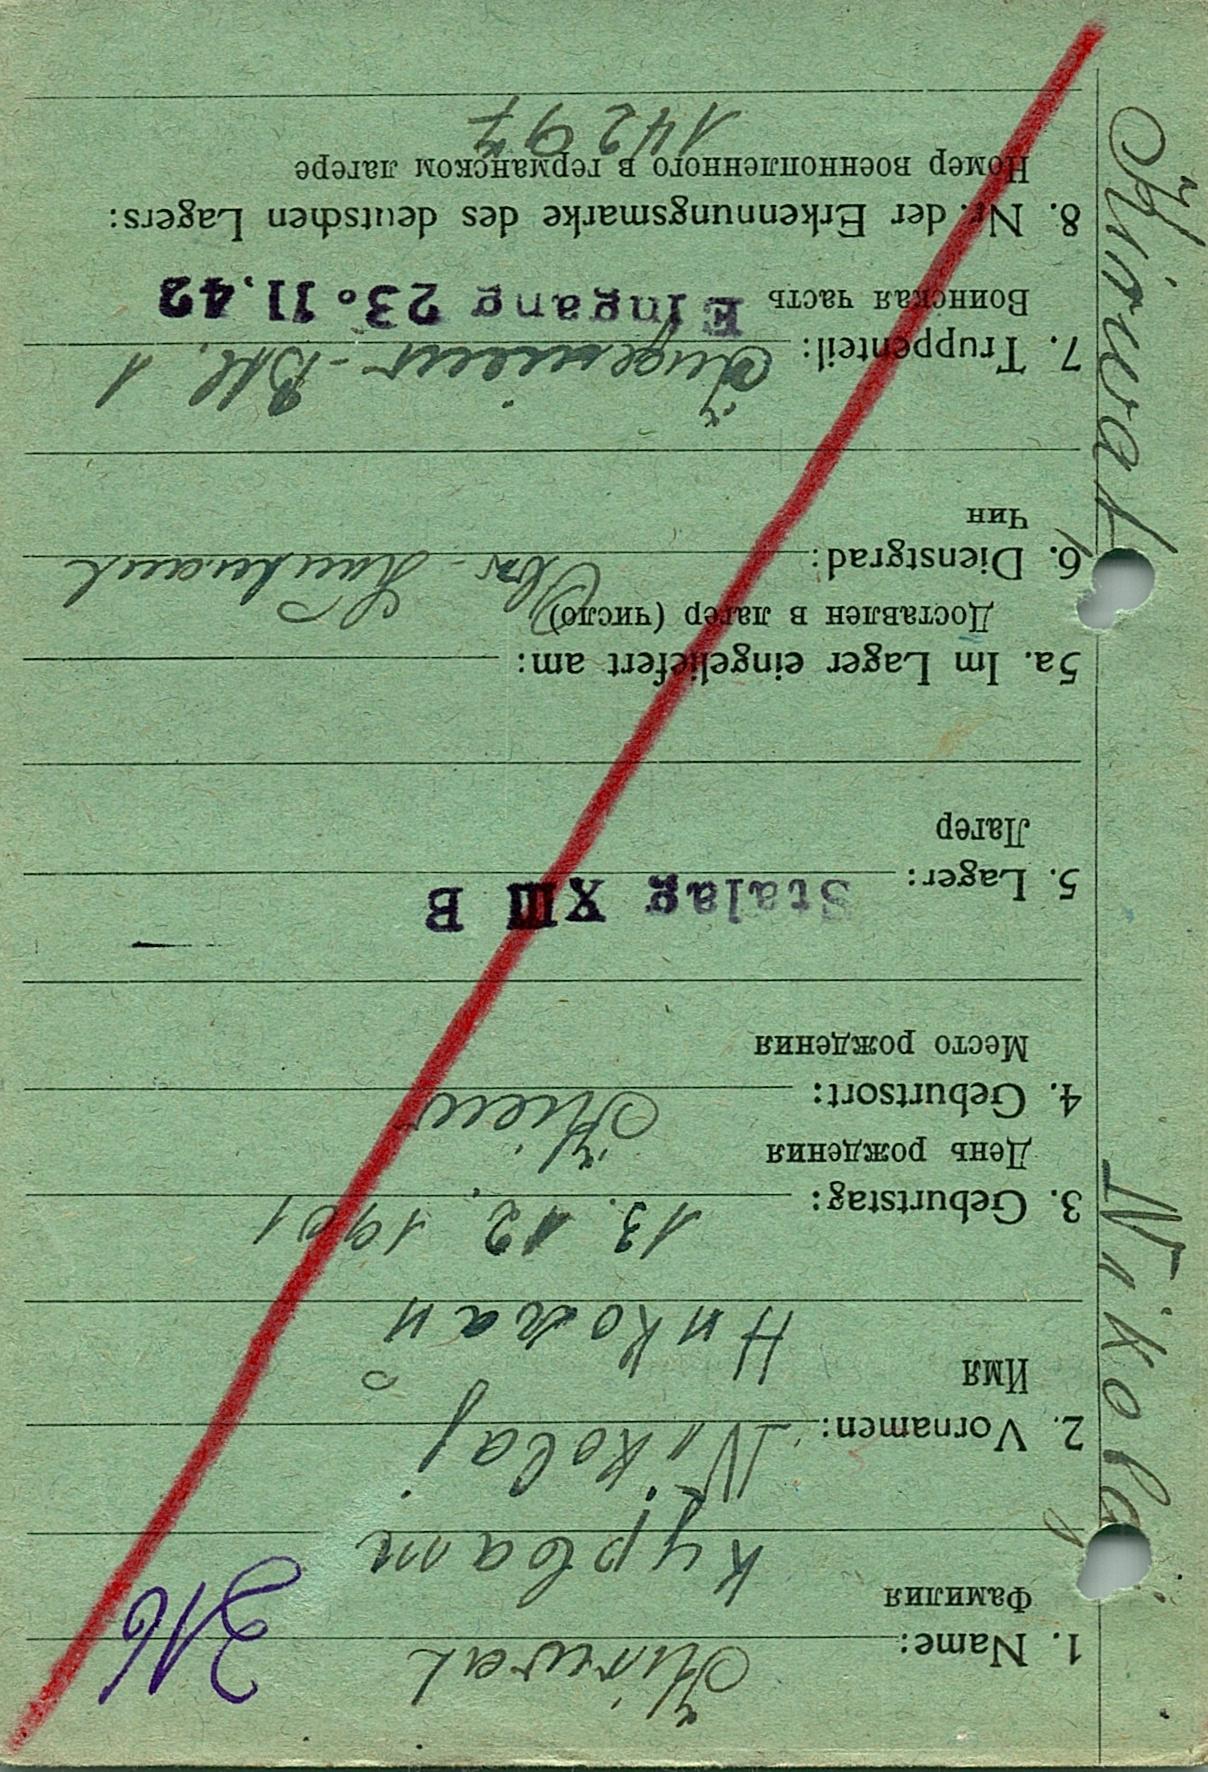 1. Name: Kürwat
Фамилия
Курват
2. Vornamen: Nikolaj
Имя
Николай
3. Geburtstag: 13. 12. 1901
День рождения
4. Geburtsort: Kiew
Место рождения
5. Lager: Stalag XIII B
Лагер
5a. Im Lager eingeliefert am:
Доставлен в лагер (число)
6. Dienstgrad: Obr - Leutnant
Чин
7. Truppenteil: Ingenieur - Btl. 1
Воинская часть Eingang 23. 11. 42
8. Nr. der Erkennungsmarke des deutschen Lagers:
Номер военнопленного в германском лагере
14297
Kürwat Nikolaj